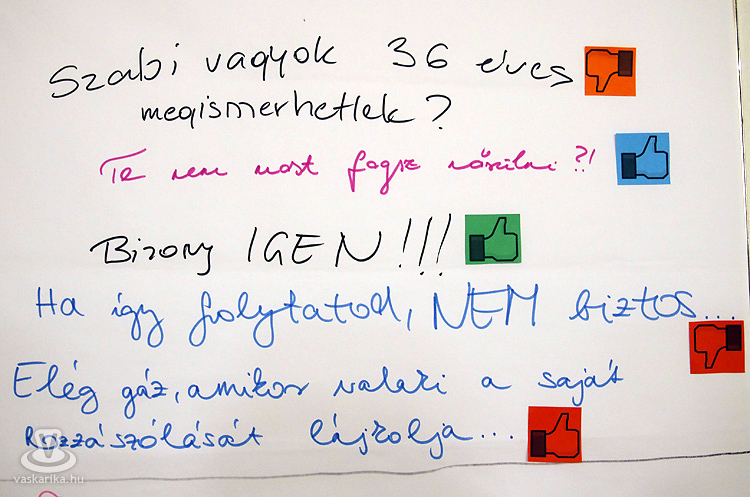 Szabi vagyok 36 éves
megismerhetlek?
Te nem most fogsz nősülni?!
Bizony IGEN!!!
Ha így folytatod, NEM biztos...
Elég gáz, amikor valaki a saját
hozzászólását lájkolja...
vaskarika.hu